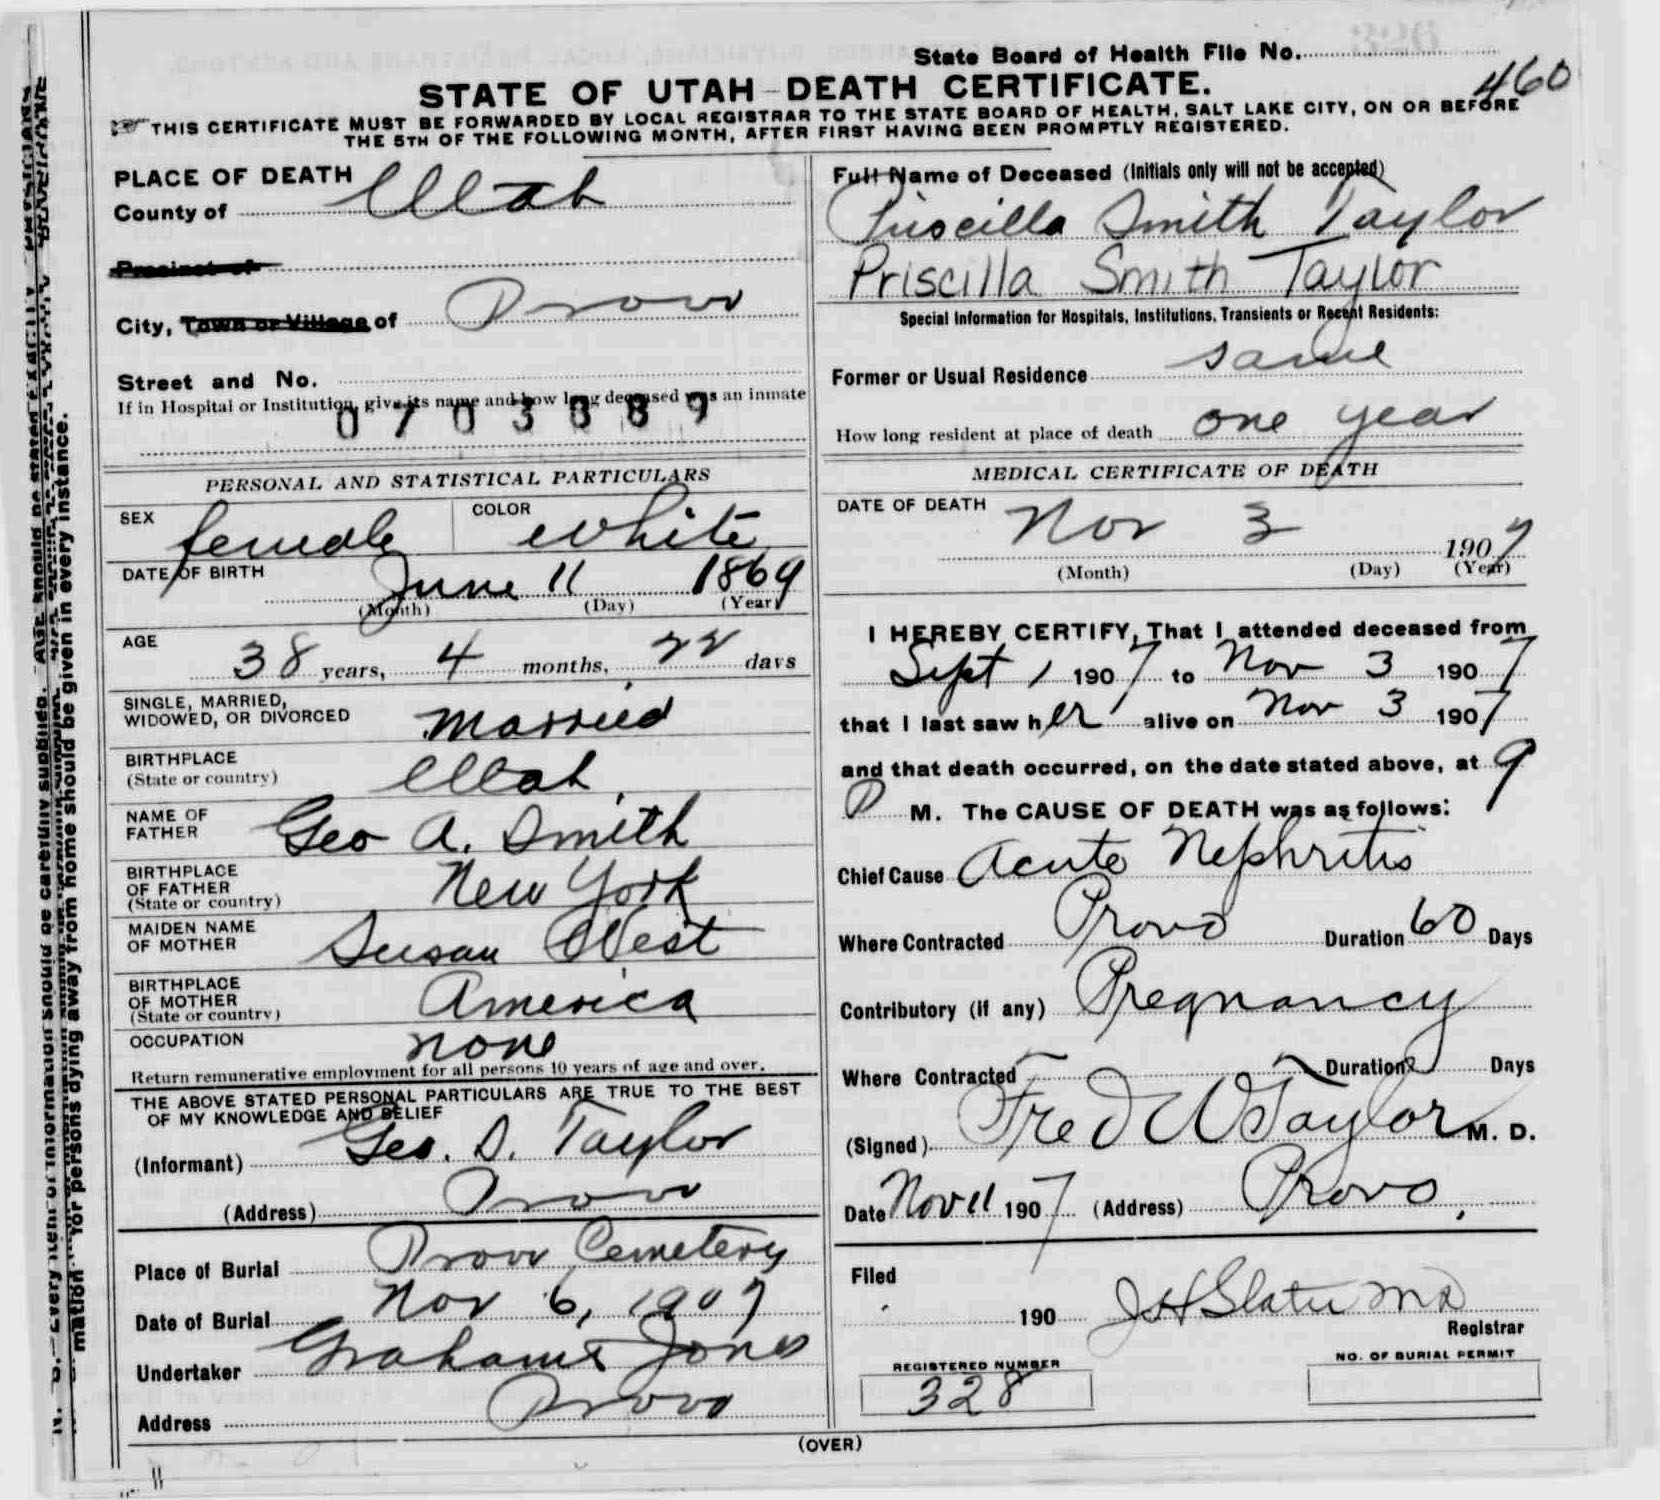 State Board of Health File No.
460
STATE OF UTAH—DEATH CERTIFICATE.
THIS CERTIFICATE MUST BE FORWARDED BY LOCAL REGISTRAR TO THE STATE BOARD OF HEALTH, SALT LAKE CITY, ON OR BEFORE
THE 5TH OF THE FOLLOWING MONTH, AFTER FIRST HAVING BEEN PROMPTLY REGISTERED.
PLACE OF DEATH
County of Utah
Precinct of
City, Town or Village of Provo
Street and No.
If in Hospital or Institution, give its name and how long deceased was an inmate
0703889
PERSONAL AND STATISTICAL PARTICULARS
SEX female COLOR white
DATE OF BIRTH June 11 1869
(Month) (Day) (Year)
AGE 38 years, 4 months, 22 days
SINGLE, MARRIED,
WIDOWED, OR DIVORCED married
BIRTHPLACE
(State or country) Utah
NAME OF
FATHER Geo A. Smith
BIRTHPLACE
OF FATHER
(State or country) New York
MAIDEN NAME
OF MOTHER Susan West
BIRTHPLACE
OF MOTHER
(State or country) America
OCCUPATION none
Return remunerative employment for all persons 10 years of age and over.
THE ABOVE STATED PERSONAL PARTICULARS ARE TRUE TO THE BEST
OF MY KNOWLEDGE AND BELIEF
(Informant) Geo. S. Taylor
(Address) Provo
Place of Burial Provo Cemetery
Date of Burial Nov 6, 1907
Undertaker Graham & Jones
Address Provo
Full Name of Deceased (Initials only will not be accepted)
Priscilla Smith Taylor
Priscilla Smith Taylor
Special Information for Hospitals, Institutions, Transients or Recent Residents:
Former or Usual Residence same
How long resident at place of death one year
MEDICAL CERTIFICATE OF DEATH
DATE OF DEATH Nov 3 1907
(Month) (Day) (Year)
I HEREBY CERTIFY, That I attended deceased from
Sept 1 1907 to Nov 3 1907
that I last saw her alive on Nov 3 1907
and that death occurred, on the date stated above, at 9
P M. The CAUSE OF DEATH was as follows:
Chief Cause Acute Nephritis
Where Contracted Provo Duration 60 Days
Contributory (if any) Pregnancy
Where Contracted Duration Days
(Signed) Fred W Taylor M. D.
Date Nov 11 1907 (Address) Provo,
Filed
190 J H Slater MD
Registrar
REGISTERED NUMBER
328
NO. OF BURIAL PERMIT
(OVER)
N. B.—Every item of information should be carefully supplied. AGE should be stated EXACTLY. PHYSICIANS
mation for persons dying away from home should be given in every instance.